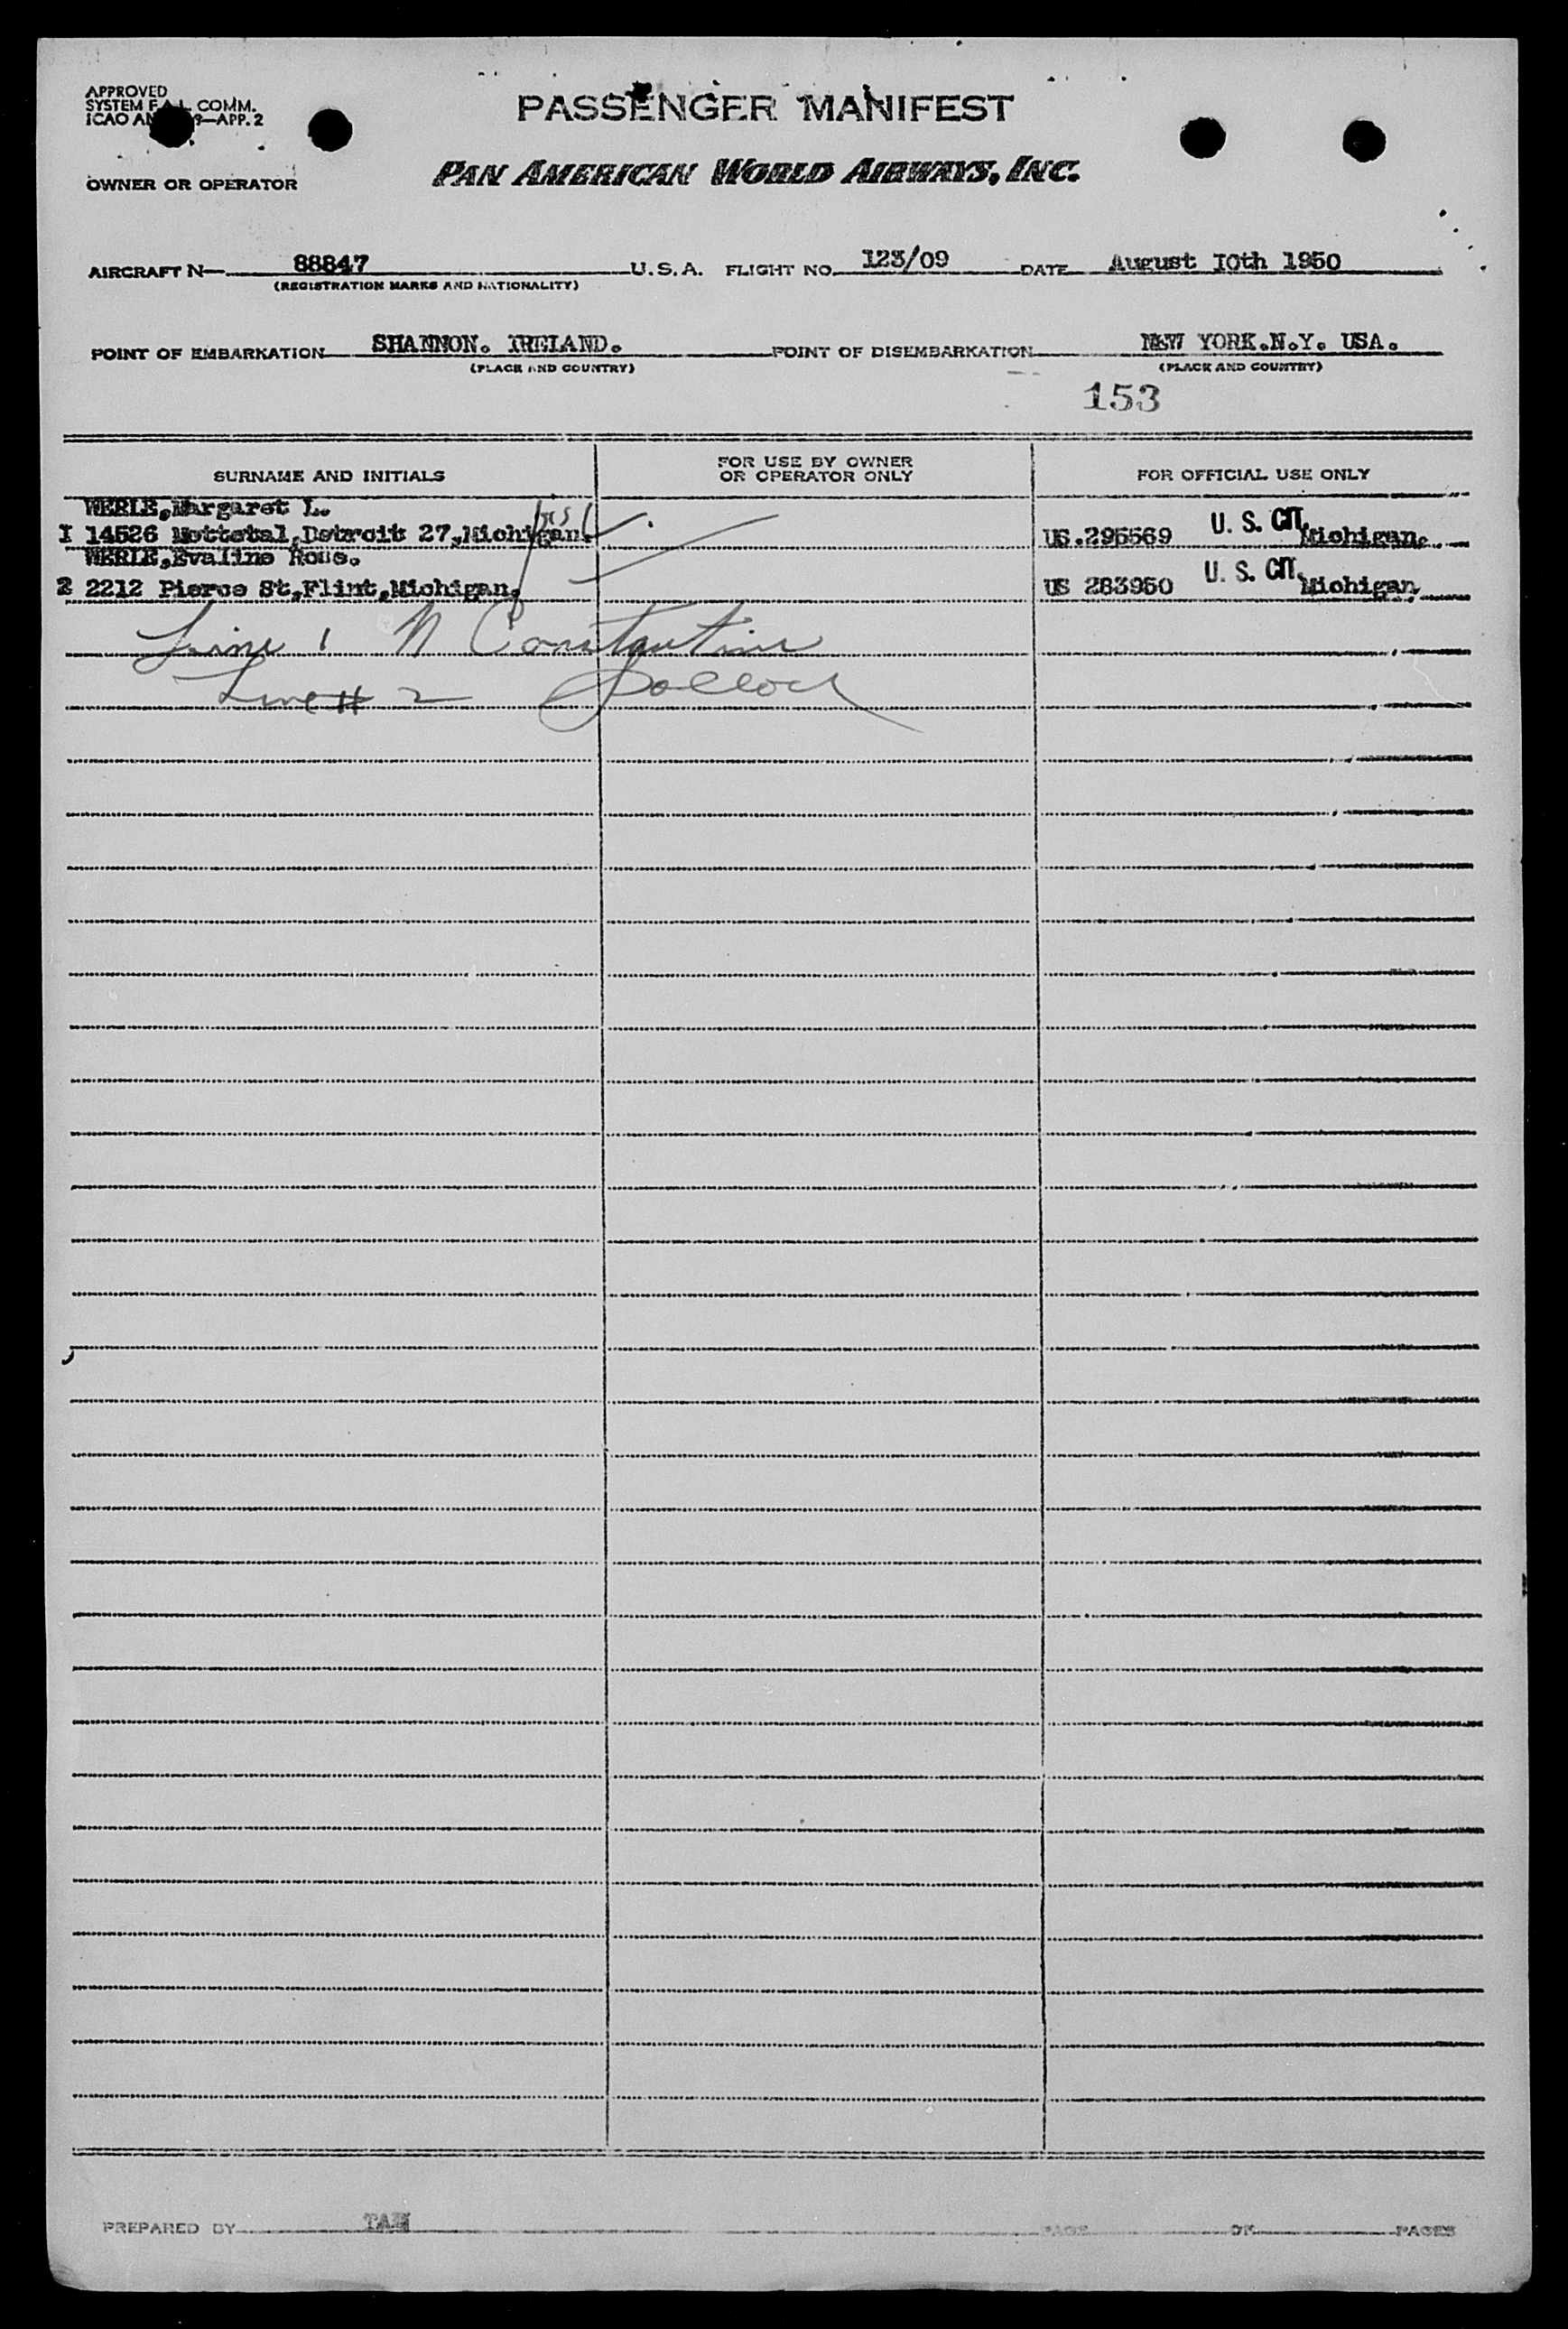 APPROVED
SYSTEM F.A.L. COMM.
ICAO AN 9—APP. 2
PASSENGER MANIFEST
OWNER OR OPERATOR PAN AMERICAN WORLD AIRWAYS, INC.
AIRCRAFT N— 88847 U.S.A. FLIGHT NO. 123/09 DATE August I0th 1950
(REGISTRATION MARKS AND NATIONALITY)
POINT OF EMBARKATION SHANNON. IRELAND. POINT OF DISEMBARKATION NEW YORK.N.Y. USA.
(PLACE AND COUNTRY) (PLACE AND COUNTRY)
153
SURNAME AND INITIALS FOR USE BY OWNER OR OPERATOR ONLY FOR OFFICIAL USE ONLY
WERLE,Margaret L.
I 14526 Mettetal,Detroit 27,Michigan. US.295569 U. S. CIT. Michigan.
WERLE,Evaline Rous.
2 2212 Pierce St,Flint,Michigan. US 283950 U. S. CIT. Michigan
Line 1 N Constantine
Line # 2 Pollock
PREPARED BY PAGE OF PAGES